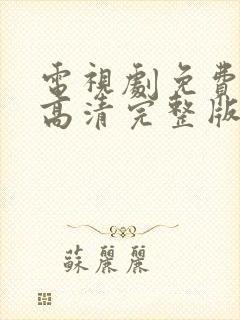 電視劇免費
高清完整版
蘇麗麗